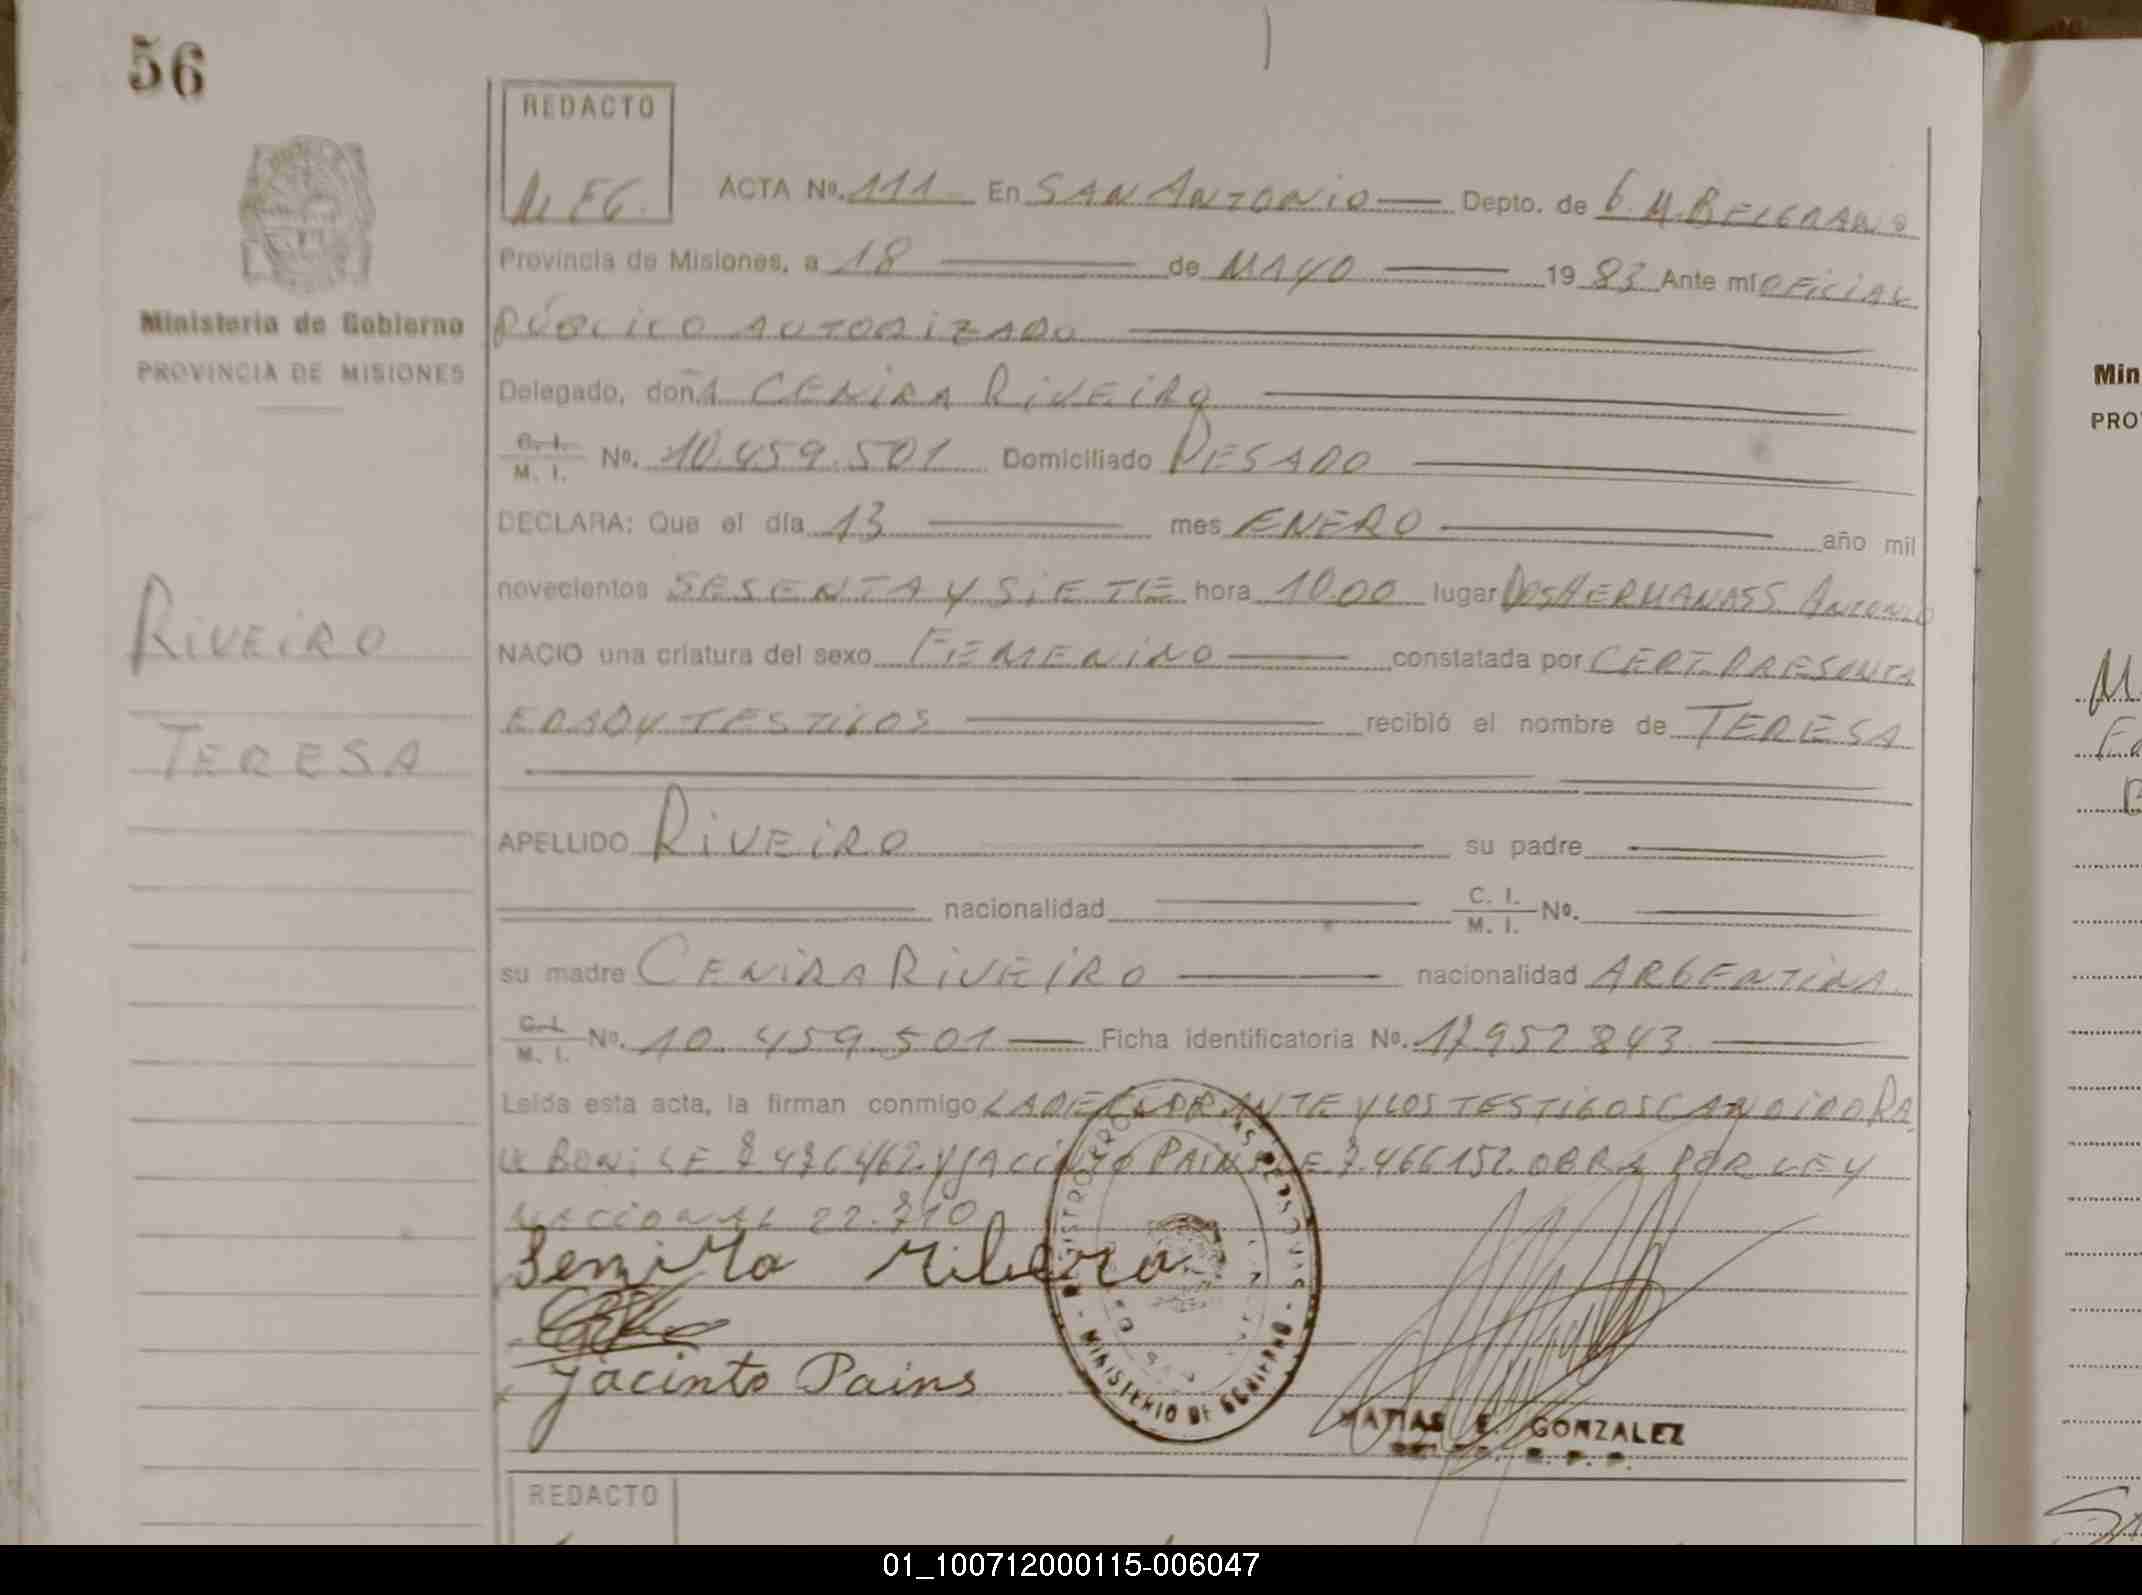 56
REDACTO
ACTA Nº. 111 En SAN ANTONIO Depto. de G. M. BELGRANO
Provincia de Misiones, a 18 de MAYO 1983 Ante mí OFICIAL
PÚBLICO AUTORIZADO
Ministerio de Gobierno
PROVINCIA DE MISIONES
Delegado, doñA CENIRA RIVEIRO
C. I. M. I. Nº. 10.459.501 Domiciliado PESADO
DECLARA: Que el día 13 mes ENERO año mil
novecientos SESENTA Y SIETE hora 10.00 lugar DOS HERMANAS S. ANTONIO
RIVEIRO
NACIO una criatura del sexo FEMENINO constatada por CERT. PRESUNTA
EDAD Y TESTIGOS recibió el nombre de TERESA
TERESA
APELLIDO RIVEIRO su padre
nacionalidad C. I. M. I. Nº.
su madre CENIRA RIVEIRO nacionalidad ARGENTINA
C. I. M. I. Nº. 10.459.501 Ficha identificatoria Nº. 17952843
Leída esta acta, la firman conmigo LA DECLARANTE Y LOS TESTIGOS
Y JACINTO PAINS 7.466152. OBRA POR LEY
NACIONAL 22.710
Jacinto Pains
MINISTERIO DE GOBIERNO
MATIAS E. GONZALEZ
REDACTO
Min
PRO
01_100712000115-006047